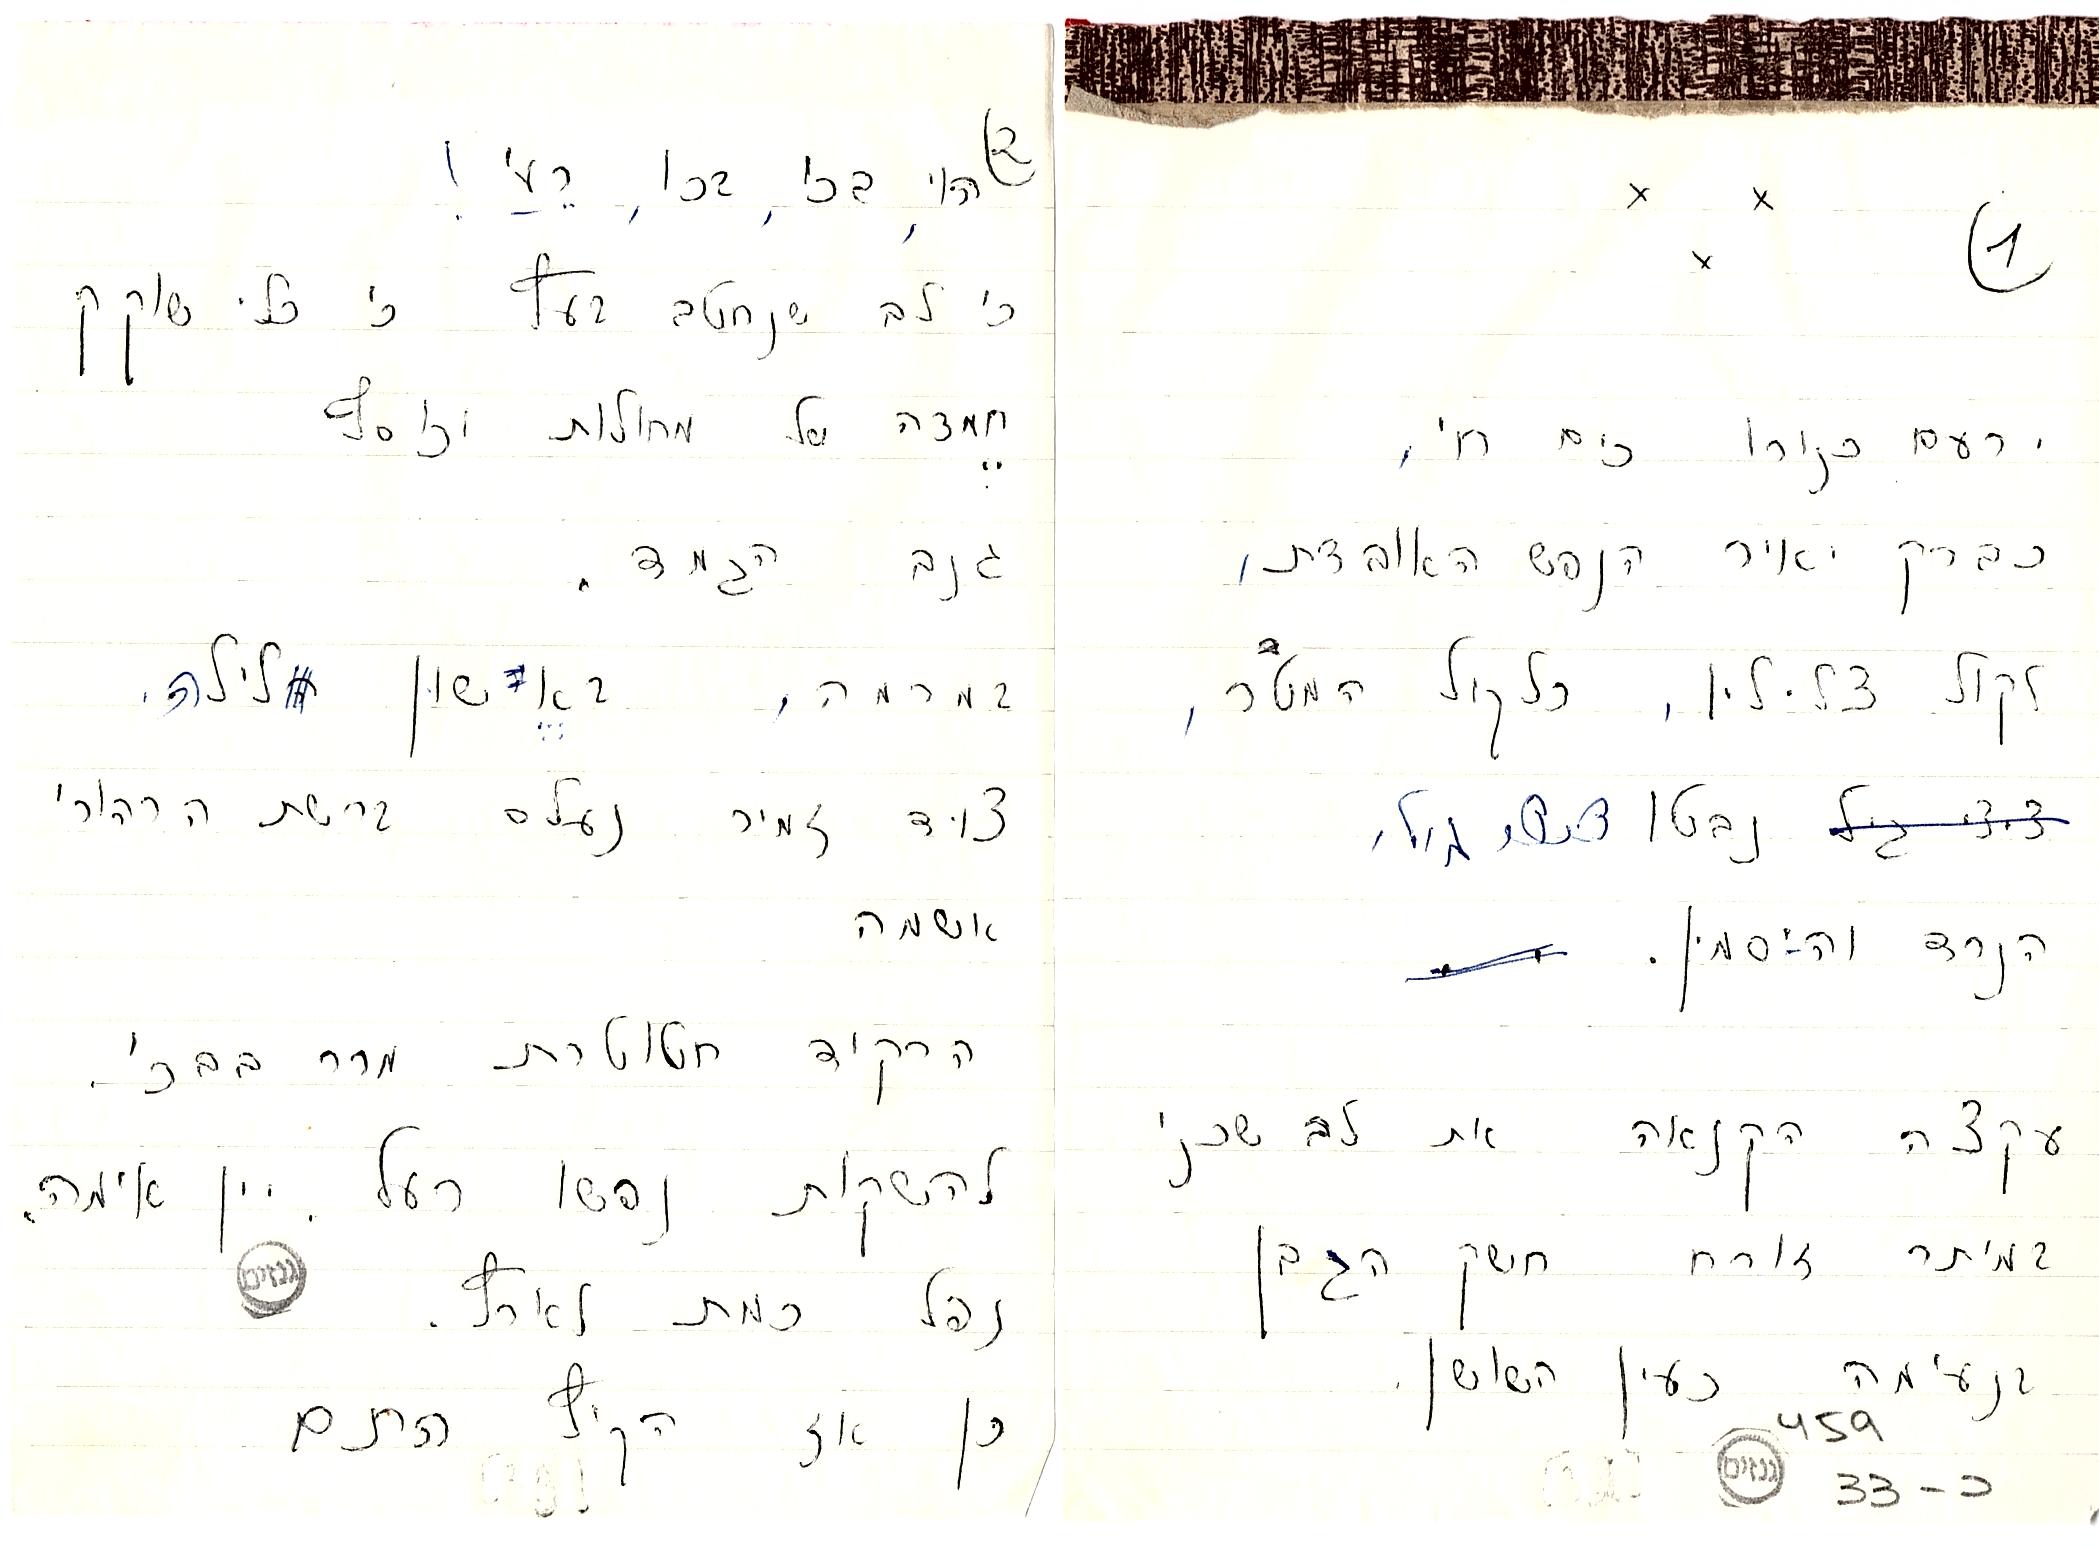 x x
x
1
ירעם כנורו כים חי,
כברק יאיר הנפש האובדת,
לקול צלילין, כלקול המטר,
ציצי גיל נבטו ציצי גיל,
הנרד והיסמין.
עקצה הקנאה את לב שכני
במיתר זורח חשק הגבן
בנעימה כעין השושן.
459
גנזים
33-כ
2
הוי, בכי, בכו, רעי!
כי לב שנחטב בעץ כי כלי שוקק
חמדה של מחולות וכוסף
גנב הגמד.
במרמה, באישון לילה.
צויד זמיר נעלם ברשת הרהורי
אשמה
הרקיד חטוטרת מרר בבכי.
להשקות נפשו רעל. יין אימה.
נפל כמת לארץ.
גנזים
כן אז הקיץ התם